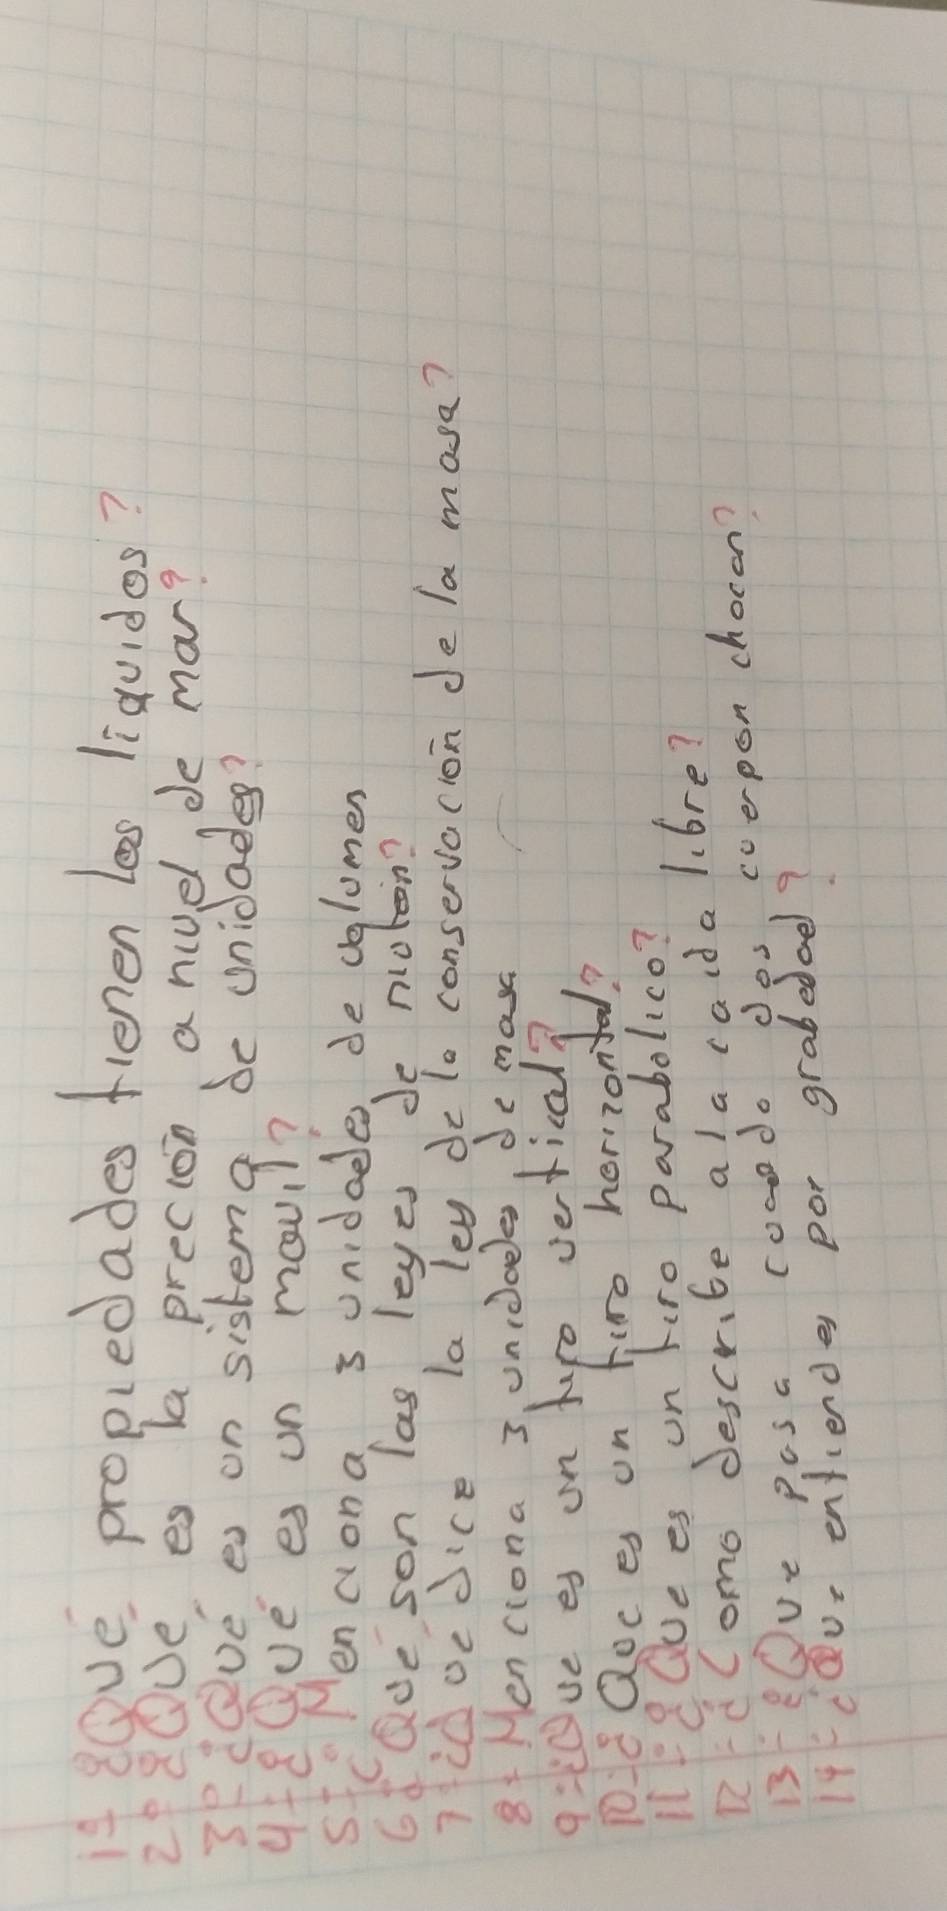 1º ¿Qué propiedades tienen los líquidos?
2º ¿Qué es la preción a nivel de mar?
3º ¿Qué es un sistema de unidades?
4= ¿Qué es un movil?
5= Menciona 3 unidades de volumen
6= ¿Qué son las leyes de niuton?
7= ¿Que dice la ley de la conservación de la masa?
8= Menciona 3 unidades de masa
9= ¿Que es un tiro vertical?
10= ¿Que es un tiro horizontal?
11= ¿Que es un tiro parabolico?
12= ¿Como describe a la caida libre?
13= ¿Que pasa cuando dos cuerpon chocan?
14= ¿Que entiendes por grabedad?